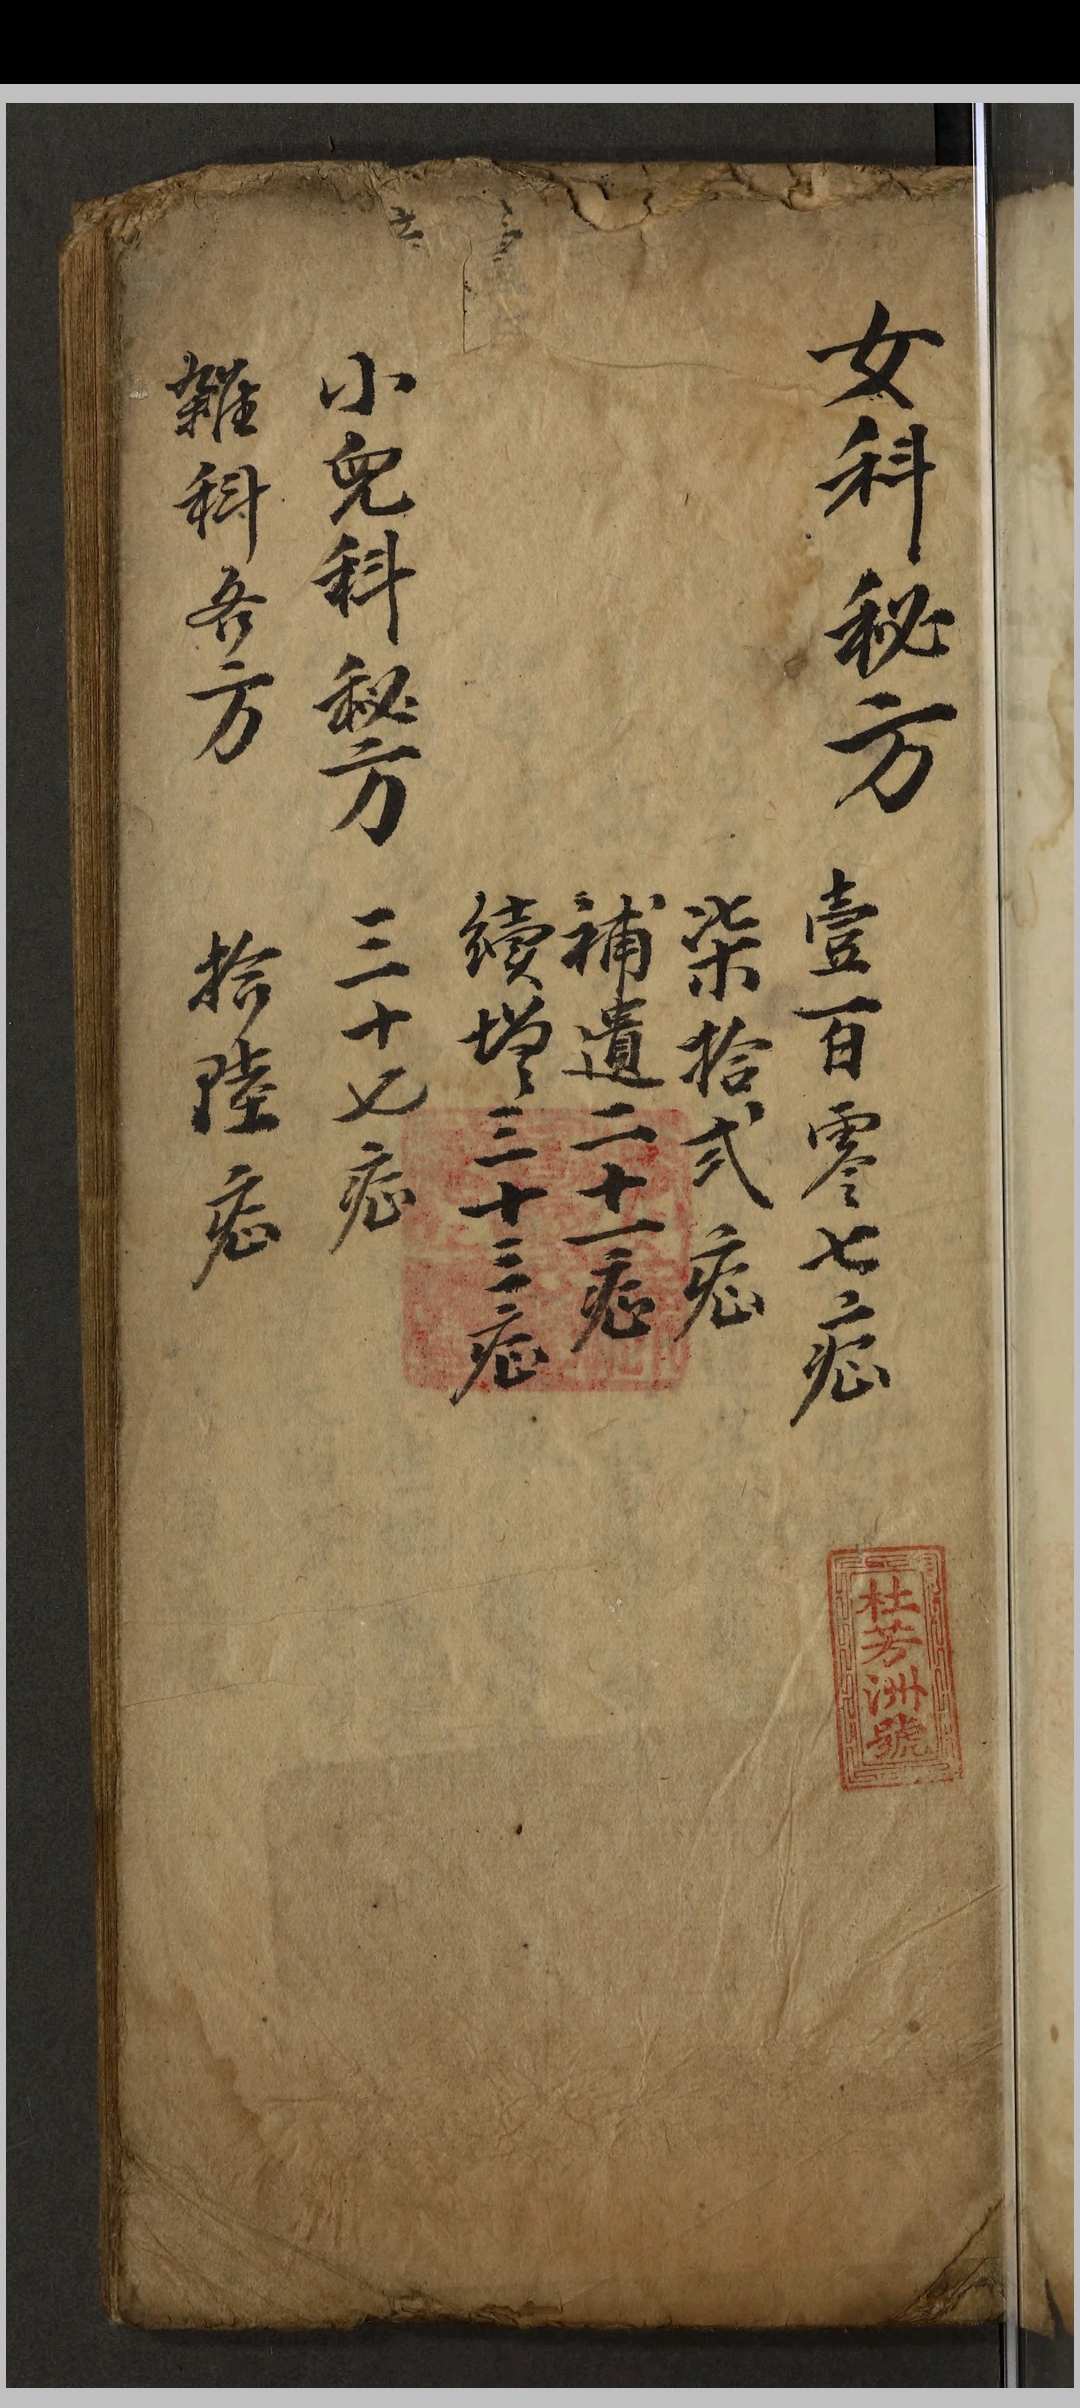 女科秘方 壹百零七症
柒拾弍症
補遺二十一症
續增三十三症
小兒科秘方 三十七症
雜科各方 拾陸症
杜芳洲號